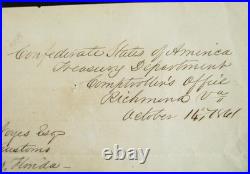 Confederate States of America
Treasury Department
Comptroller's Office
Richmond Va
October 14, 1861
Esq
ustoms
orida